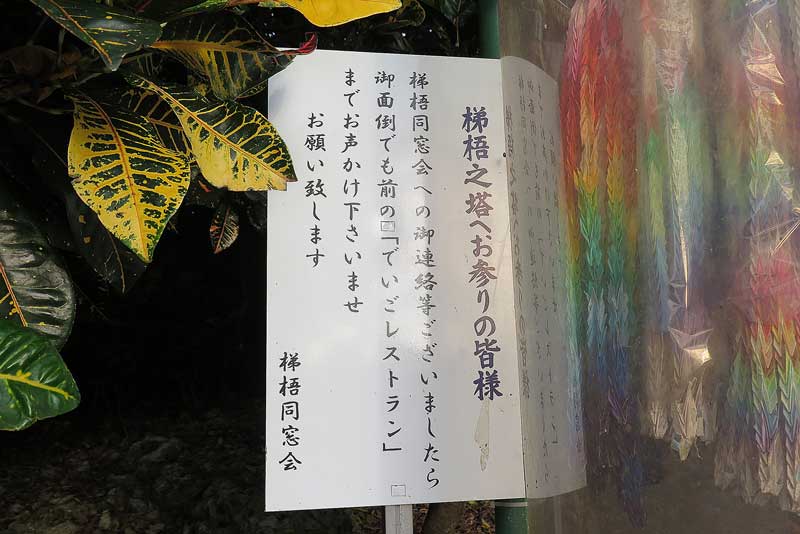 梯梧之塔へお参りの皆様
梯梧同窓会への御連絡等ございましたら
御面倒でも前の「でいごレストラン」
までお声かけ下さいませ
お願い致します
梯梧同窓会